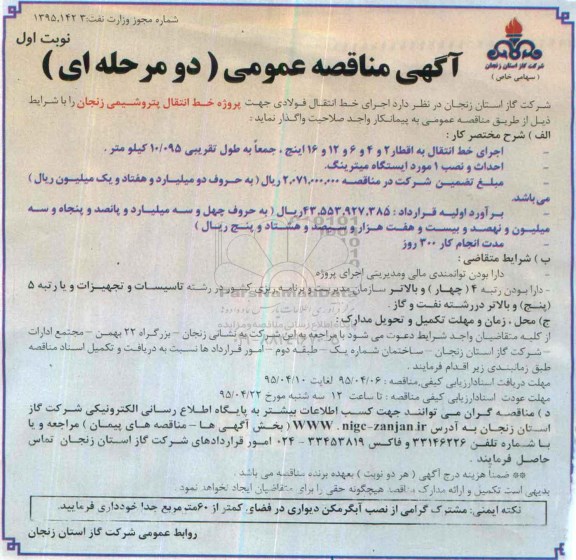 شماره مجوز وزارت نفت: ۱۳۹۵,۱۴۲۳
نوبت اول
شرکت گاز استان زنجان
( سهامی خاص )
آگهی مناقصه عمومی ( دو مرحله ای )
شرکت گاز استان زنجان در نظر دارد اجرای خط انتقال فولادی جهت پروژه خط انتقال پتروشیمی زنجان را با شرایط
ذیل از طریق مناقصه عمومی به پیمانکار واجد صلاحیت واگذار نماید :
الف ) شرح مختصر کار :
- اجرای خط انتقال به اقطار ۲ و ۴ و ۶ و ۱۲ و ۱۶ اینچ ، جمعاً به طول تقریبی ۱۰/۰۹۵ کیلو متر .
- احداث و نصب ۱ مورد ایستگاه میترینگ.
- مبلغ تضمین شرکت در مناقصه ۲,۰۷۱,۰۰۰,۰۰۰ ریال ( به حروف دو میلیارد و هفتاد و یک میلیون ریال )
می باشد.
- بر آورد اولیه قرارداد : ۴۳,۵۵۳,۹۲۷,۳۸۵ ریال ( به حروف چهل و سه میلیارد و پانصد و پنجاه و سه
میلیون و نهصد و بیست و هفت هزار و سیصد و هشتاد و پنج ریال )
- مدت انجام کار ۳۰۰ روز
ب ) شرایط متقاضی :
- دارا بودن توانمندی مالی ومدیریتی اجرای پروژه.
- دارا بودن رتبه ۴ ( چهار ) و بالاتر سازمان مدیریت و برنامه ریزی کشور در رشته تاسیسات و تجهیزات و یا رتبه ۵
(پنج) و بالاتر دررشته نفت و گاز .
ج) محل ، زمان و مهلت تکمیل و تحویل مدارک :
از کلیه متقاضیان واجد شرایط دعوت می شود با مراجعه به این شرکت به نشانی زنجان – بزرگراه ۲۲ بهمن – مجتمع ادارات
– شرکت گاز استان زنجان – ساختمان شماره یک – طبقه دوم – امور قرارداد ها نسبت به دریافت و تکمیل اسناد مناقصه
طبق زمانبندی زیر اقدام فرمایند .
مهلت دریافت اسنادارزیابی کیفی مناقصه : ۹۵/۰۴/۰۶ لغایت ۹۵/۰۴/۱۰
مهلت عودت اسنادارزیابی کیفی مناقصه : تا ساعت ۱۲ سه شنبه مورخ ۹۵/۰۴/۲۲
د ) مناقصه گران می توانند جهت کسب اطلاعات بیشتر به پایگاه اطلاع رسانی الکترونیکی شرکت گاز
استان زنجان به آدرس WWW . nigc-zanjan.ir ( بخش آگهی ها – مناقصه های پیمان ) مراجعه و یا
با شماره تلفن ۳۳۱۴۶۲۲۶ و فاکس ۳۳۴۵۳۸۱۹ – ۰۲۴ امور قراردادهای شرکت گاز استان زنجان تماس
حاصل فرمایند .
** ضمناً هزینه درج آگهی ( هر دو نوبت ) بعهده برنده مناقصه می باشد .
بدیهی است تکمیل و ارائه مدارک مناقصه هیچگونه حقی را برای متقاضیان ایجاد نخواهد نمود.
نکته ایمنی: مشترک گرامی از نصب آبگرمکن دیواری در فضای کمتر از ۶۰متر مربع جدا خودداری فرمایید.
روابط عمومی شرکت گاز استان زنجان